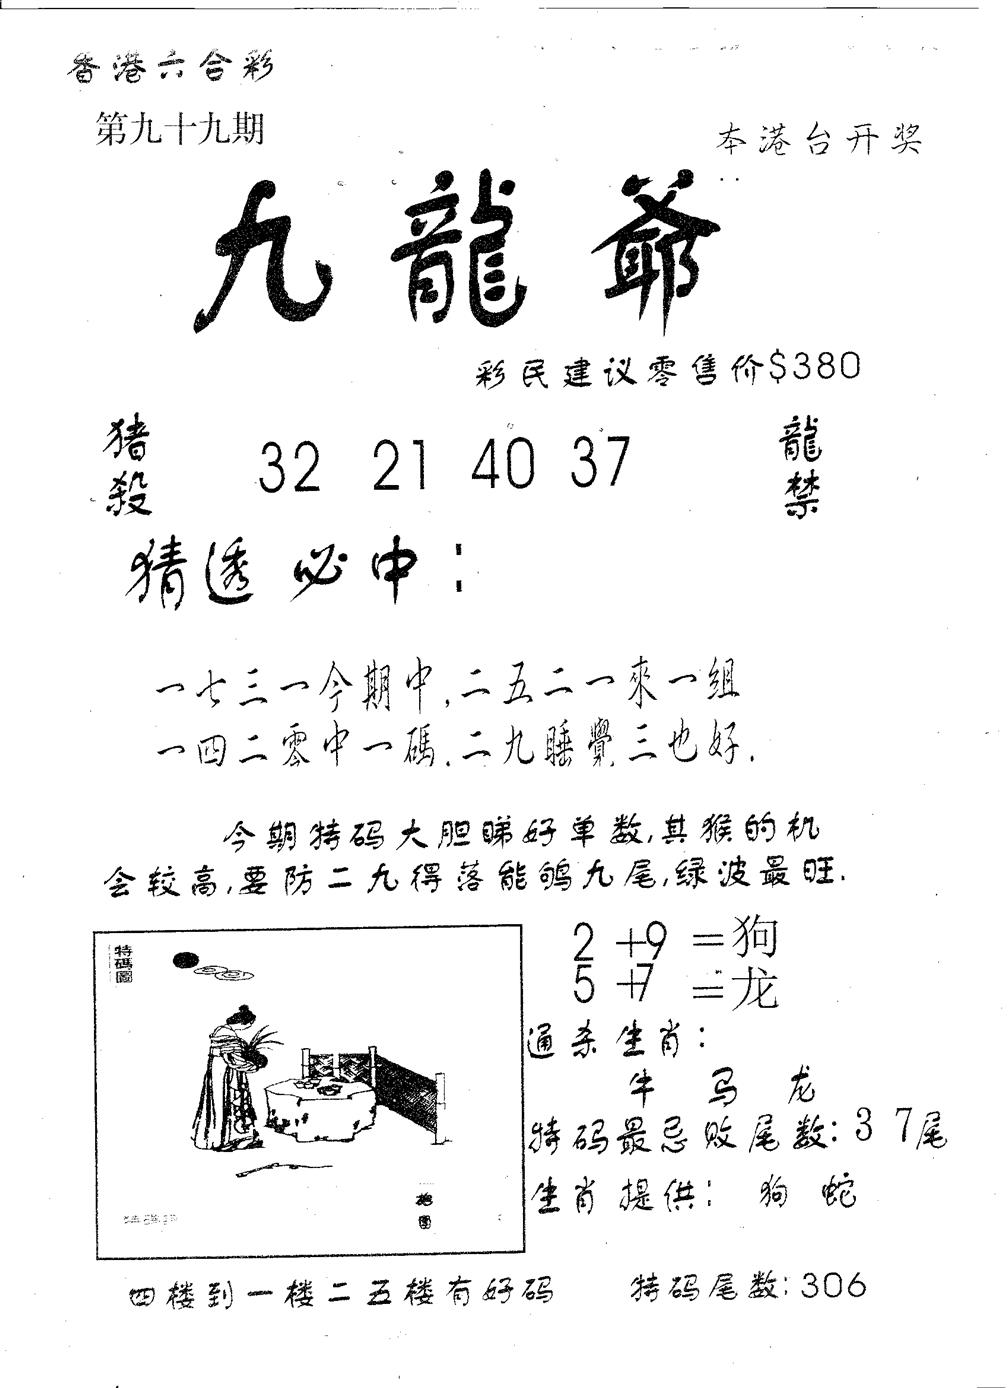 香港六合彩
第九十九期
本港台开奖
九龍爺
彩民建议零售价$380
猪殺
32 21 40 37
龍禁
猜透必中：
一七三一今期中,二五二一來一組
一四二零中一碼,二九睡覺三也好.
今期特码大胆睇好单数,其猴的机
会较高,要防二九得落能鸲九尾,绿波最旺.
2+9=狗
5+7=龙
特碼圖
通杀生肖:
牛 马 龙
特码最忌败尾数:3 7尾
生肖提供: 狗 蛇
四楼到一楼二五楼有好码 特码尾数:306